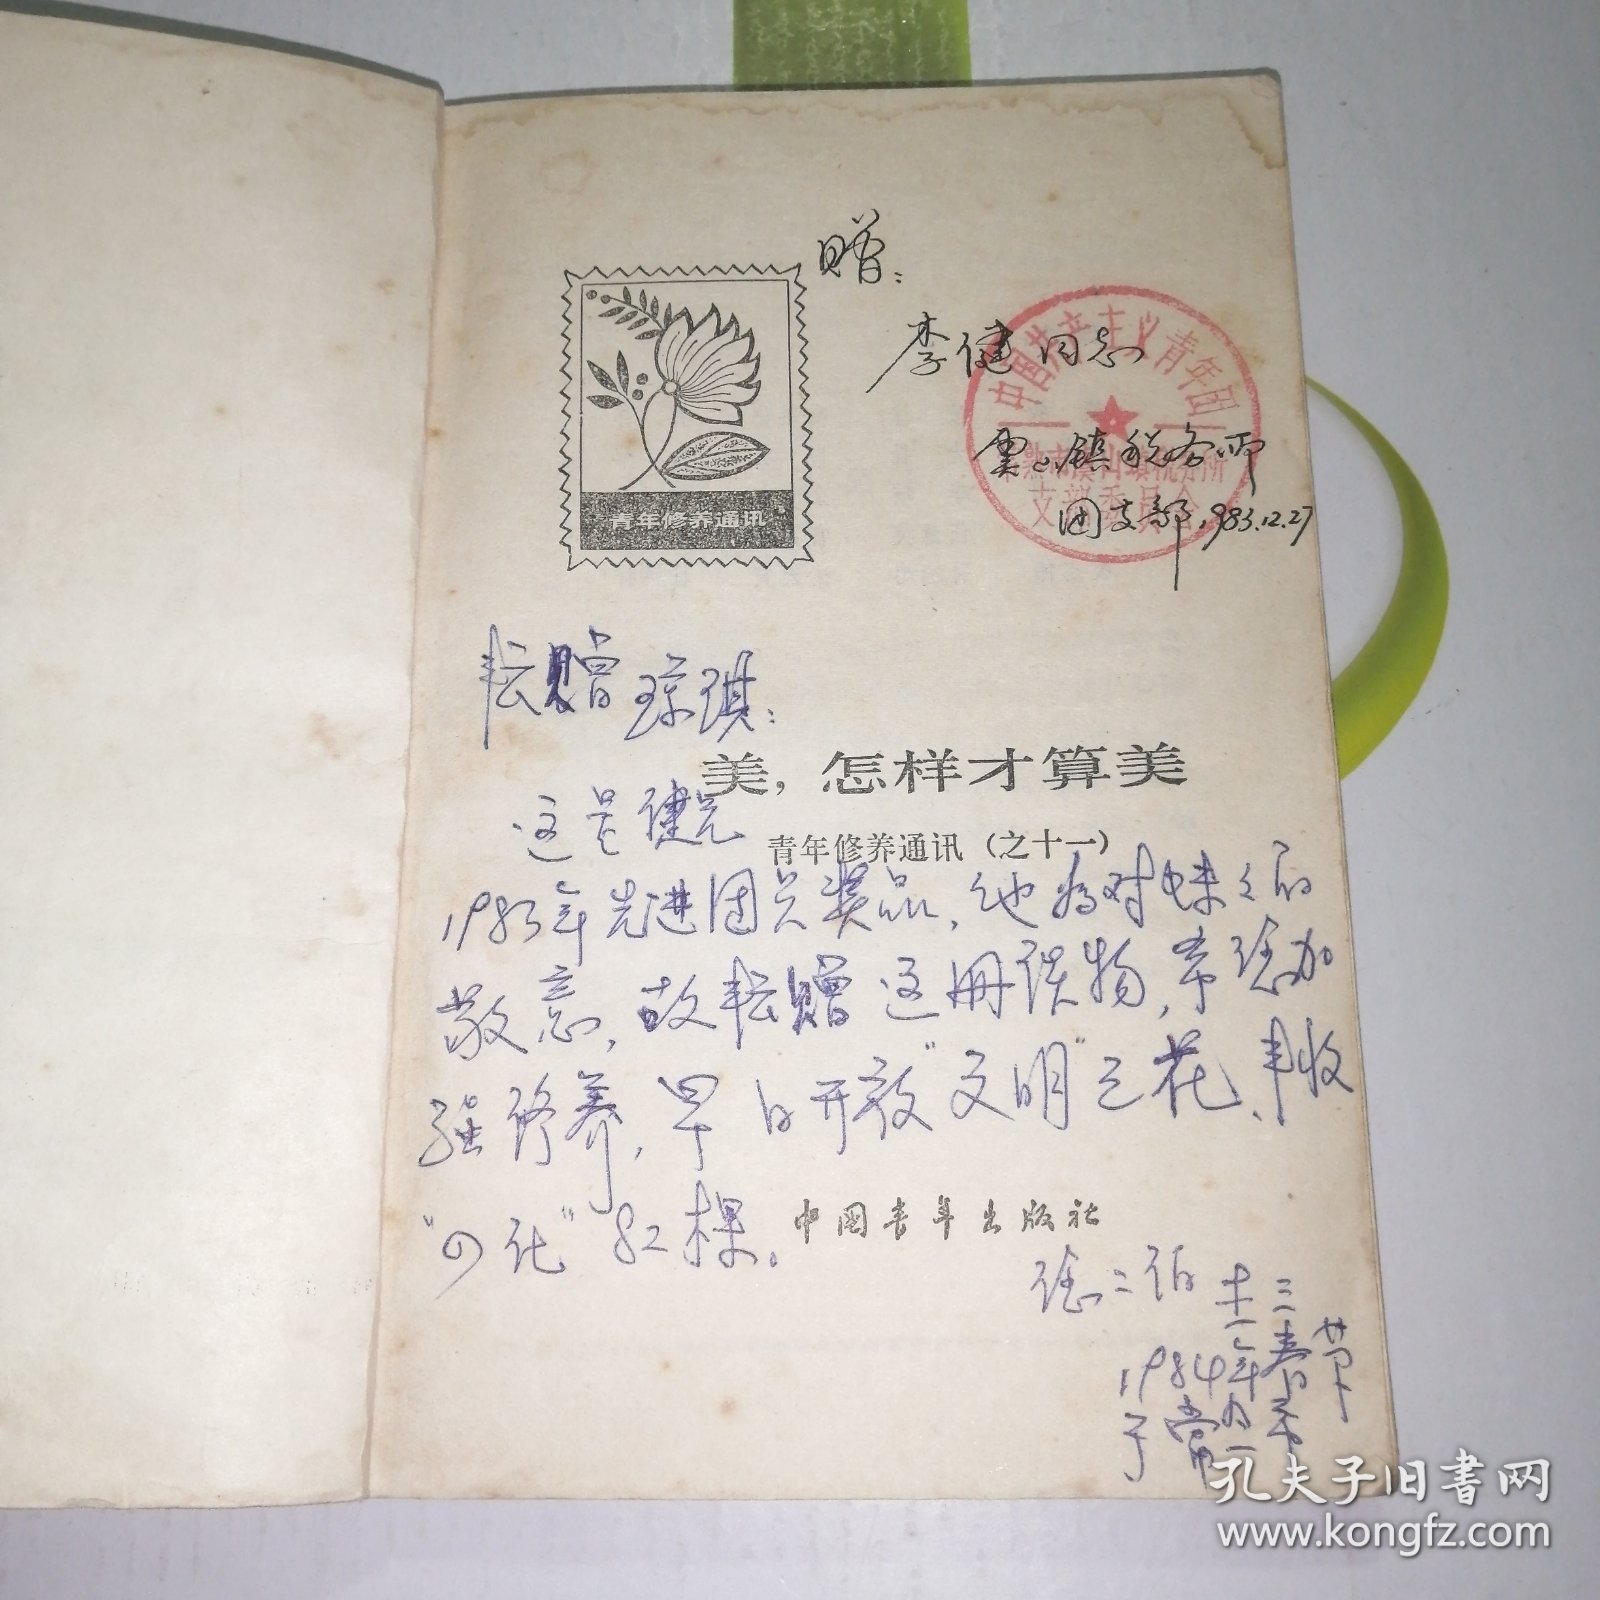 赠：
李健同志
镇税务所
团支部 1983.12.27
中国共产主义青年团
支部委员会
青年修养通讯
转赠琼琪：
美，怎样才算美
这是健兄
青年修养通讯（之十一）
1983年先进团员奖品，他为对妹之的
敬意，故转赠这册读物，希您加
强修养，早日开放“文明”之花、丰收
“四化”红棵。
中国青年出版社
1984年
于常
孔夫子旧书网
www.kongfz.com